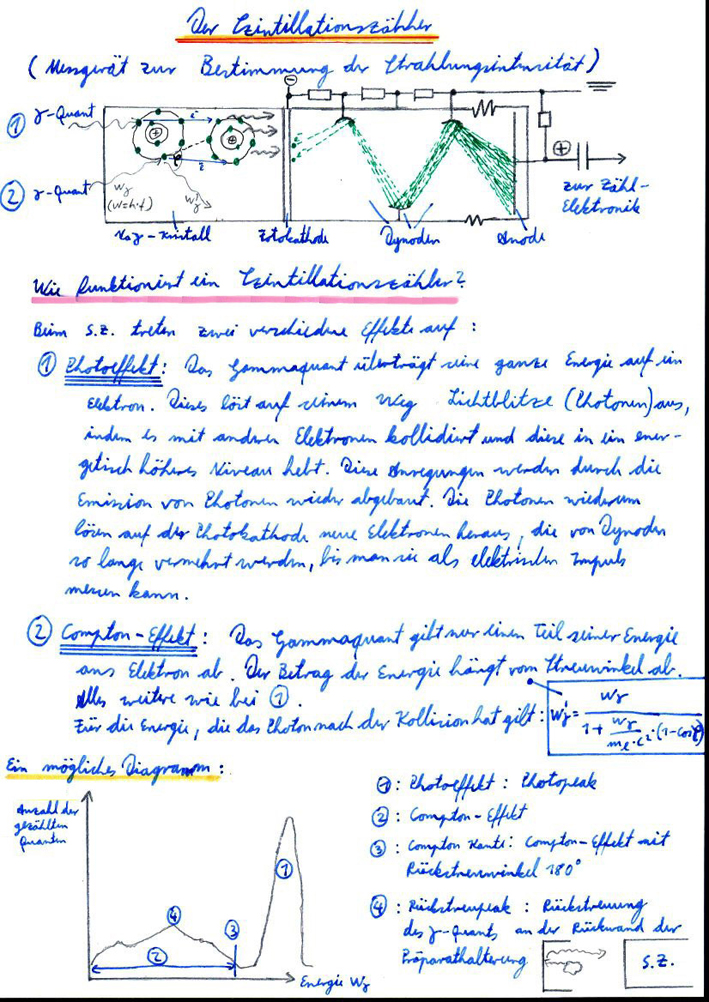 Der Szintillationszähler
(Messgerät zur Bestimmung der Strahlungsintensität)
① γ-Quant
② γ-Quant
Wγ
(W=h·f)
Wγ'
zur Zähl-
Elektronik
NaJ-Kristall
Fotokathode
Dynoden
Anode
Wie funktioniert ein Szintillationszähler?
Beim S.Z. treten zwei verschiedene Effekte auf:
① Photoeffekt: Das Gammaquant überträgt seine ganze Energie auf ein
Elektron. Dieses löst auf seinem Weg Lichtblitze (Photonen) aus,
indem es mit anderen Elektronen kollidiert und diese in ein ener-
getisch höheres Niveau hebt. Diese Anregungen werden durch die
Emission von Photonen wieder abgebaut. Die Photonen wiederum
lösen auf der Photokathode neue Elektronen heraus, die von Dynoden
so lange vermehrt werden, bis man sie als elektrischen Impuls
messen kann.
② Compton-Effekt: Das Gammaquant gibt nur einen Teil seiner Energie
ans Elektron ab. Der Betrag der Energie hängt vom Streuwinkel ab.
Alles weitere wie bei ①.
Für die Energie, die das Photon nach der Kollision hat gilt: Wγ' = Wγ / (1 + Wγ/(me·c²)·(1-cosφ))
Ein mögliches Diagramm:
Anzahl der
gezählten
Quanten
①
②
③
④
Energie Wγ
①: Photoeffekt: Photopeak
②: Compton-Effekt
③: Compton Kante: Compton-Effekt mit
Rückstreuwinkel 180°
④: Rückstreupeak: Rückstreuung
des γ-Quants an der Rückwand der
Präparathalterung
S.Z.